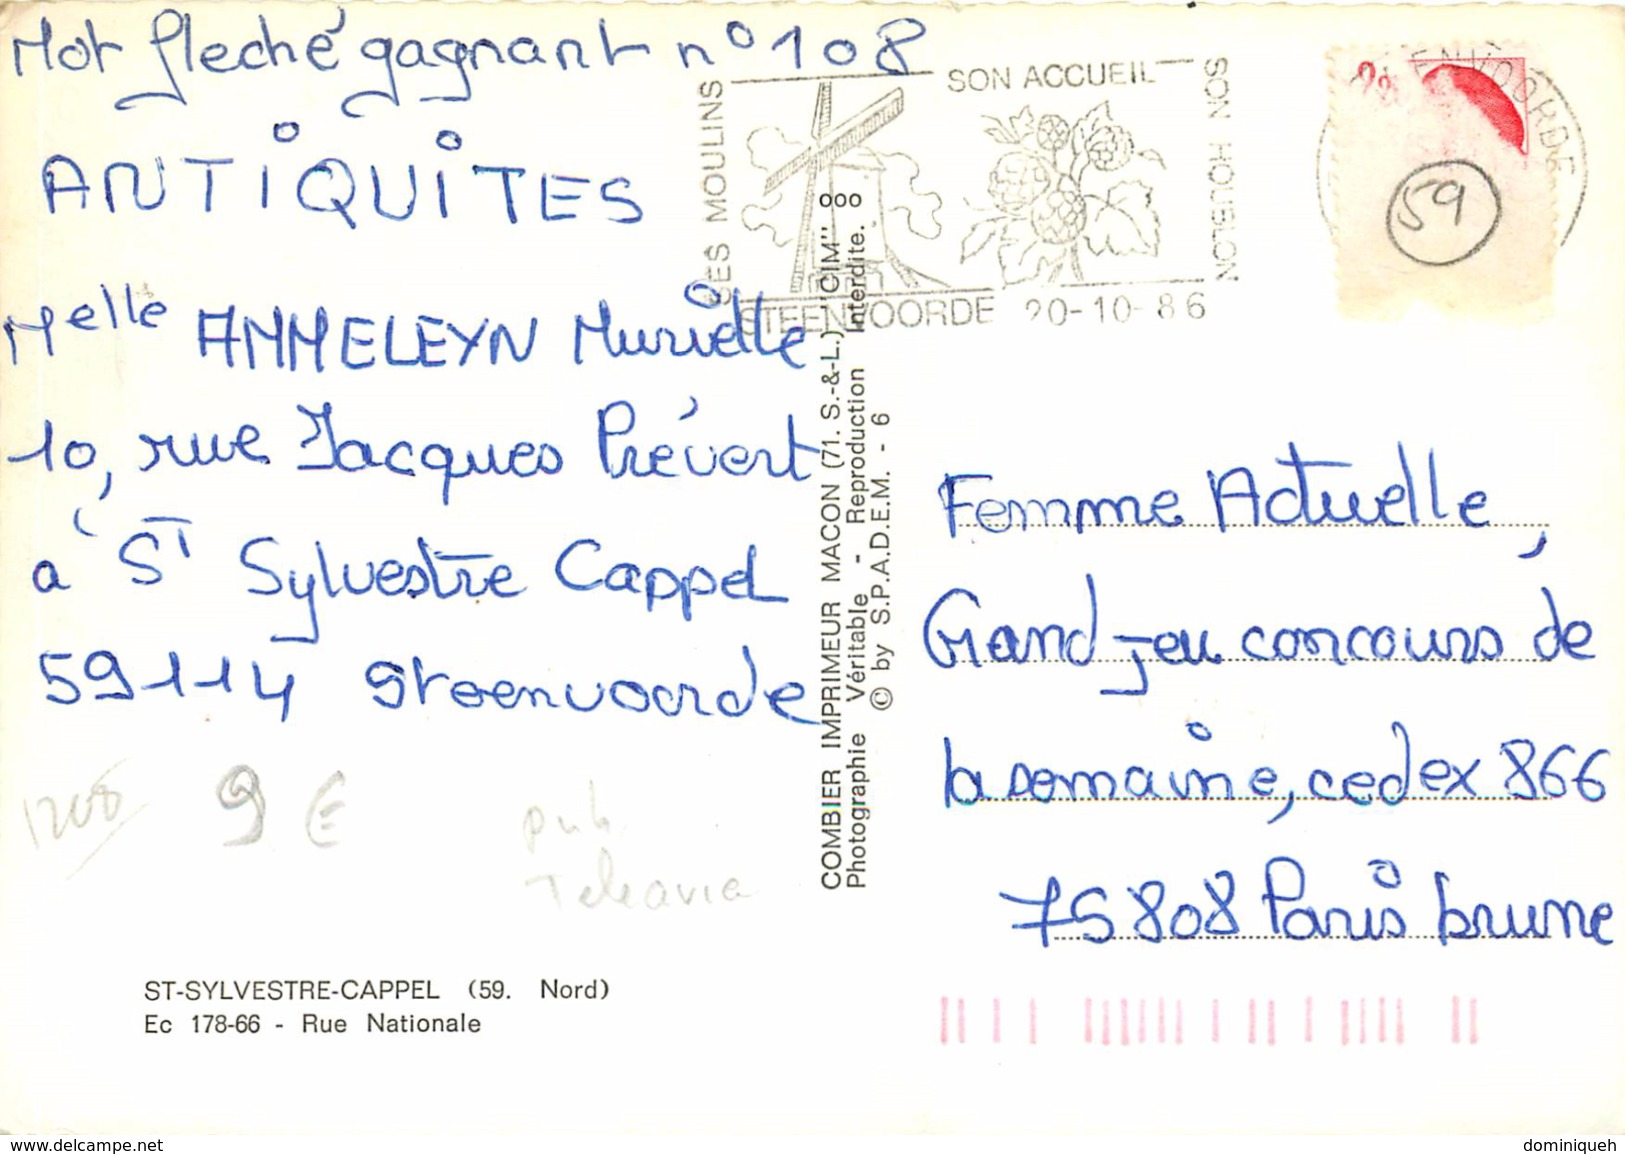 Mot fleché gagnant n° 108
ANTIQUITES
Melle AMMELEYN Murielle
10, rue Jacques Prévert
à ST Sylvestre Cappel
59114 Steenvoorde
1200
9 €
pub
Teleavia
ST-SYLVESTRE-CAPPEL (59. Nord)
Ec 178-66 - Rue Nationale
SES MOULINS
SON ACCUEIL
SON HOUBLON
STEENVOORDE 20-10-86
COMBIER IMPRIMEUR MACON (71. S.-&-L.) "CIM" ooo
Photographie Véritable - Reproduction Interdite.
© by S.P.A.D.E.M. - 6
ENVOORDE
59
Femme Actuelle,
Grand jeu concours de
la semaine, cedex 866
75808 Paris brune
www.delcampe.net
dominiqueh